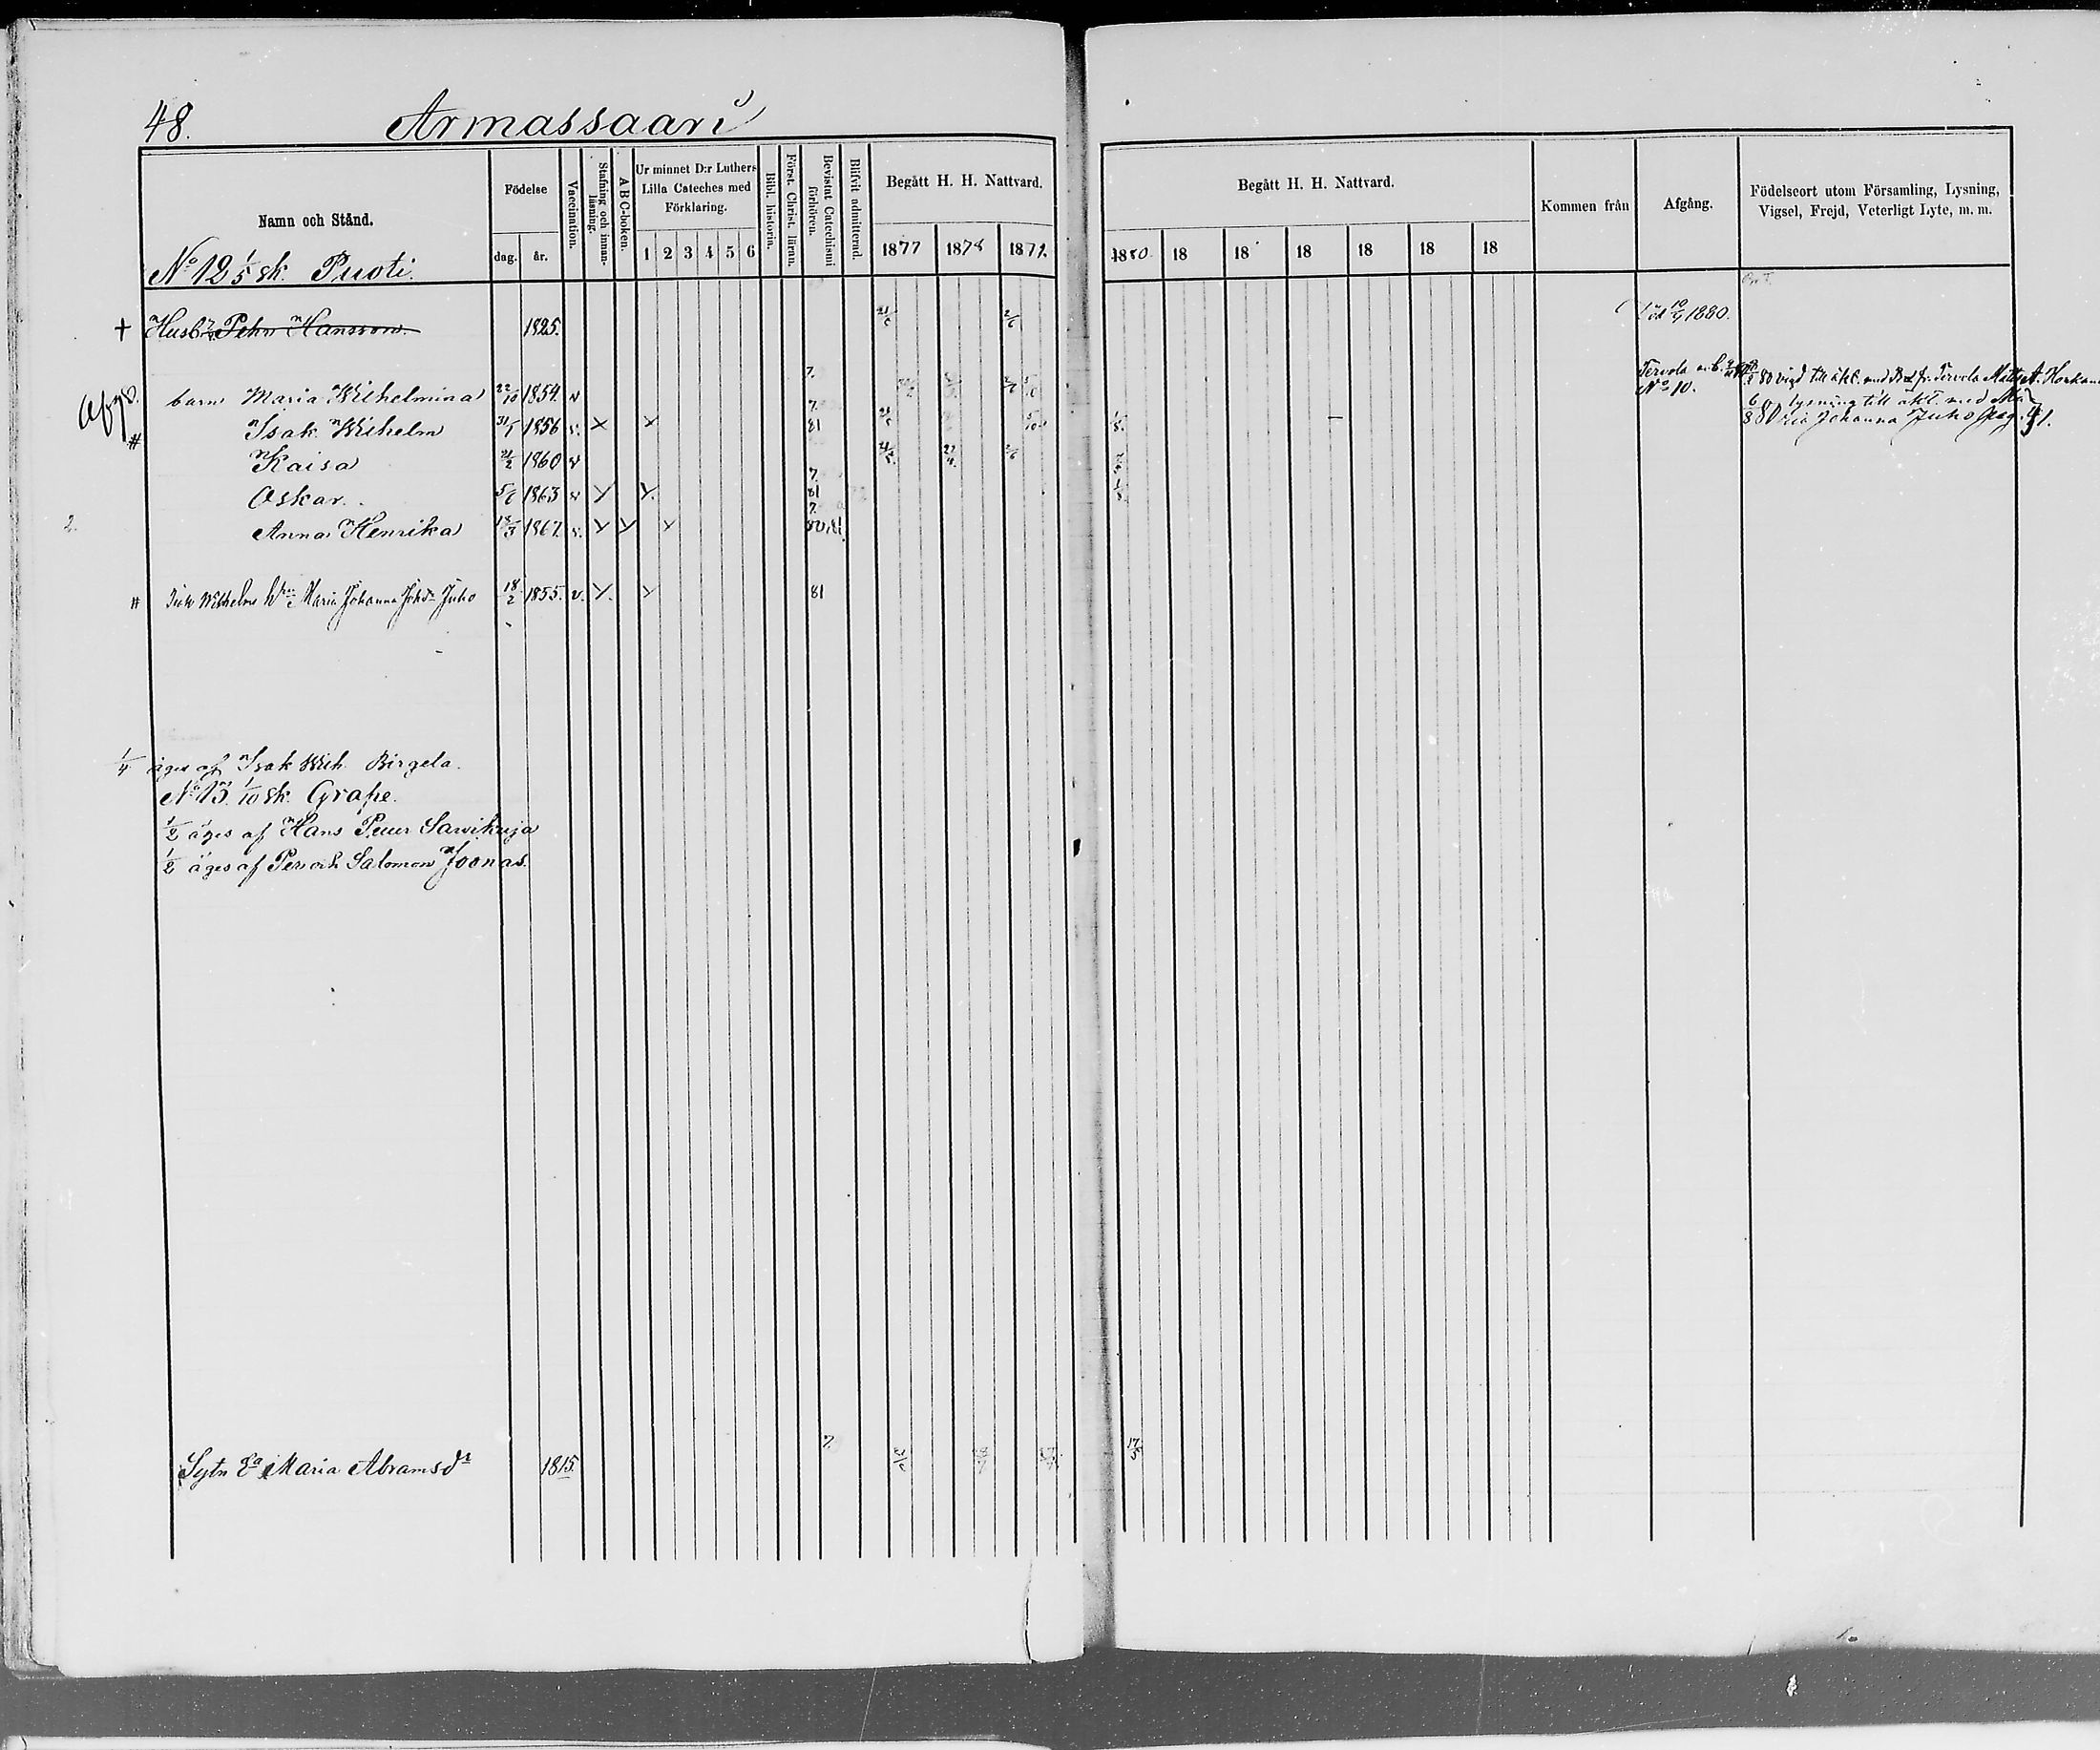 48. Armassaari
Namn och Stånd.
Födelse
dag. år.
Vaccination.
Stafning och innanläsning.
A B C-boken.
Ur minnet D:r Luthers Lilla Cateches med Förklaring.
1 2 3 4 5 6
Bibl. historia.
Först. Christ. läran.
Bevistat Catechismi förhören.
Blifvit admitterad.
Begått H. H. Nattvard.
1877 1878 1879.
Begått H. H. Nattvard.
1880. 18 18 18 18 18 18
Kommen från
Afgång.
Födelseort utom Församling, Lysning, Vigsel, Frejd, Veterligt Lyte, m. m.
No 12 1/5 sk. Puoti.
† Husb. Pehr Hansson. 1825. 2/6 Död 19/9 1880.
Afg. barn Maria Wilhelmina 22/10 1854. v 7. Tervola No 10. 80 vigd till äkt. med fr. Tervola Matts A.
# Isak Wilhelm 31/1 1856 v. x x 7. 81 lysning till äkt. med Maria Johanna Juho pag. 31.
Kaisa 21/2 1860 v 2/6
Oskar. 5/6 1863 v Y Y. 7. 81
2. Anna Henrika 18/3 1867. v. Y Y Y 7. 80, 81.
# Isak Wilhelms Maria Johanna Juho 18/2 1855. v. Y. Y 81
1/4 äges af Isak Wilh. Birgeta.
No 13. 1/10 sk. Grape.
1/2 äges af Hans Puur Sarvikuja
1/2 äges af Per och Salomon Joonas.
Sytn Ea Maria Abramsdr 1815. 7. 17/5